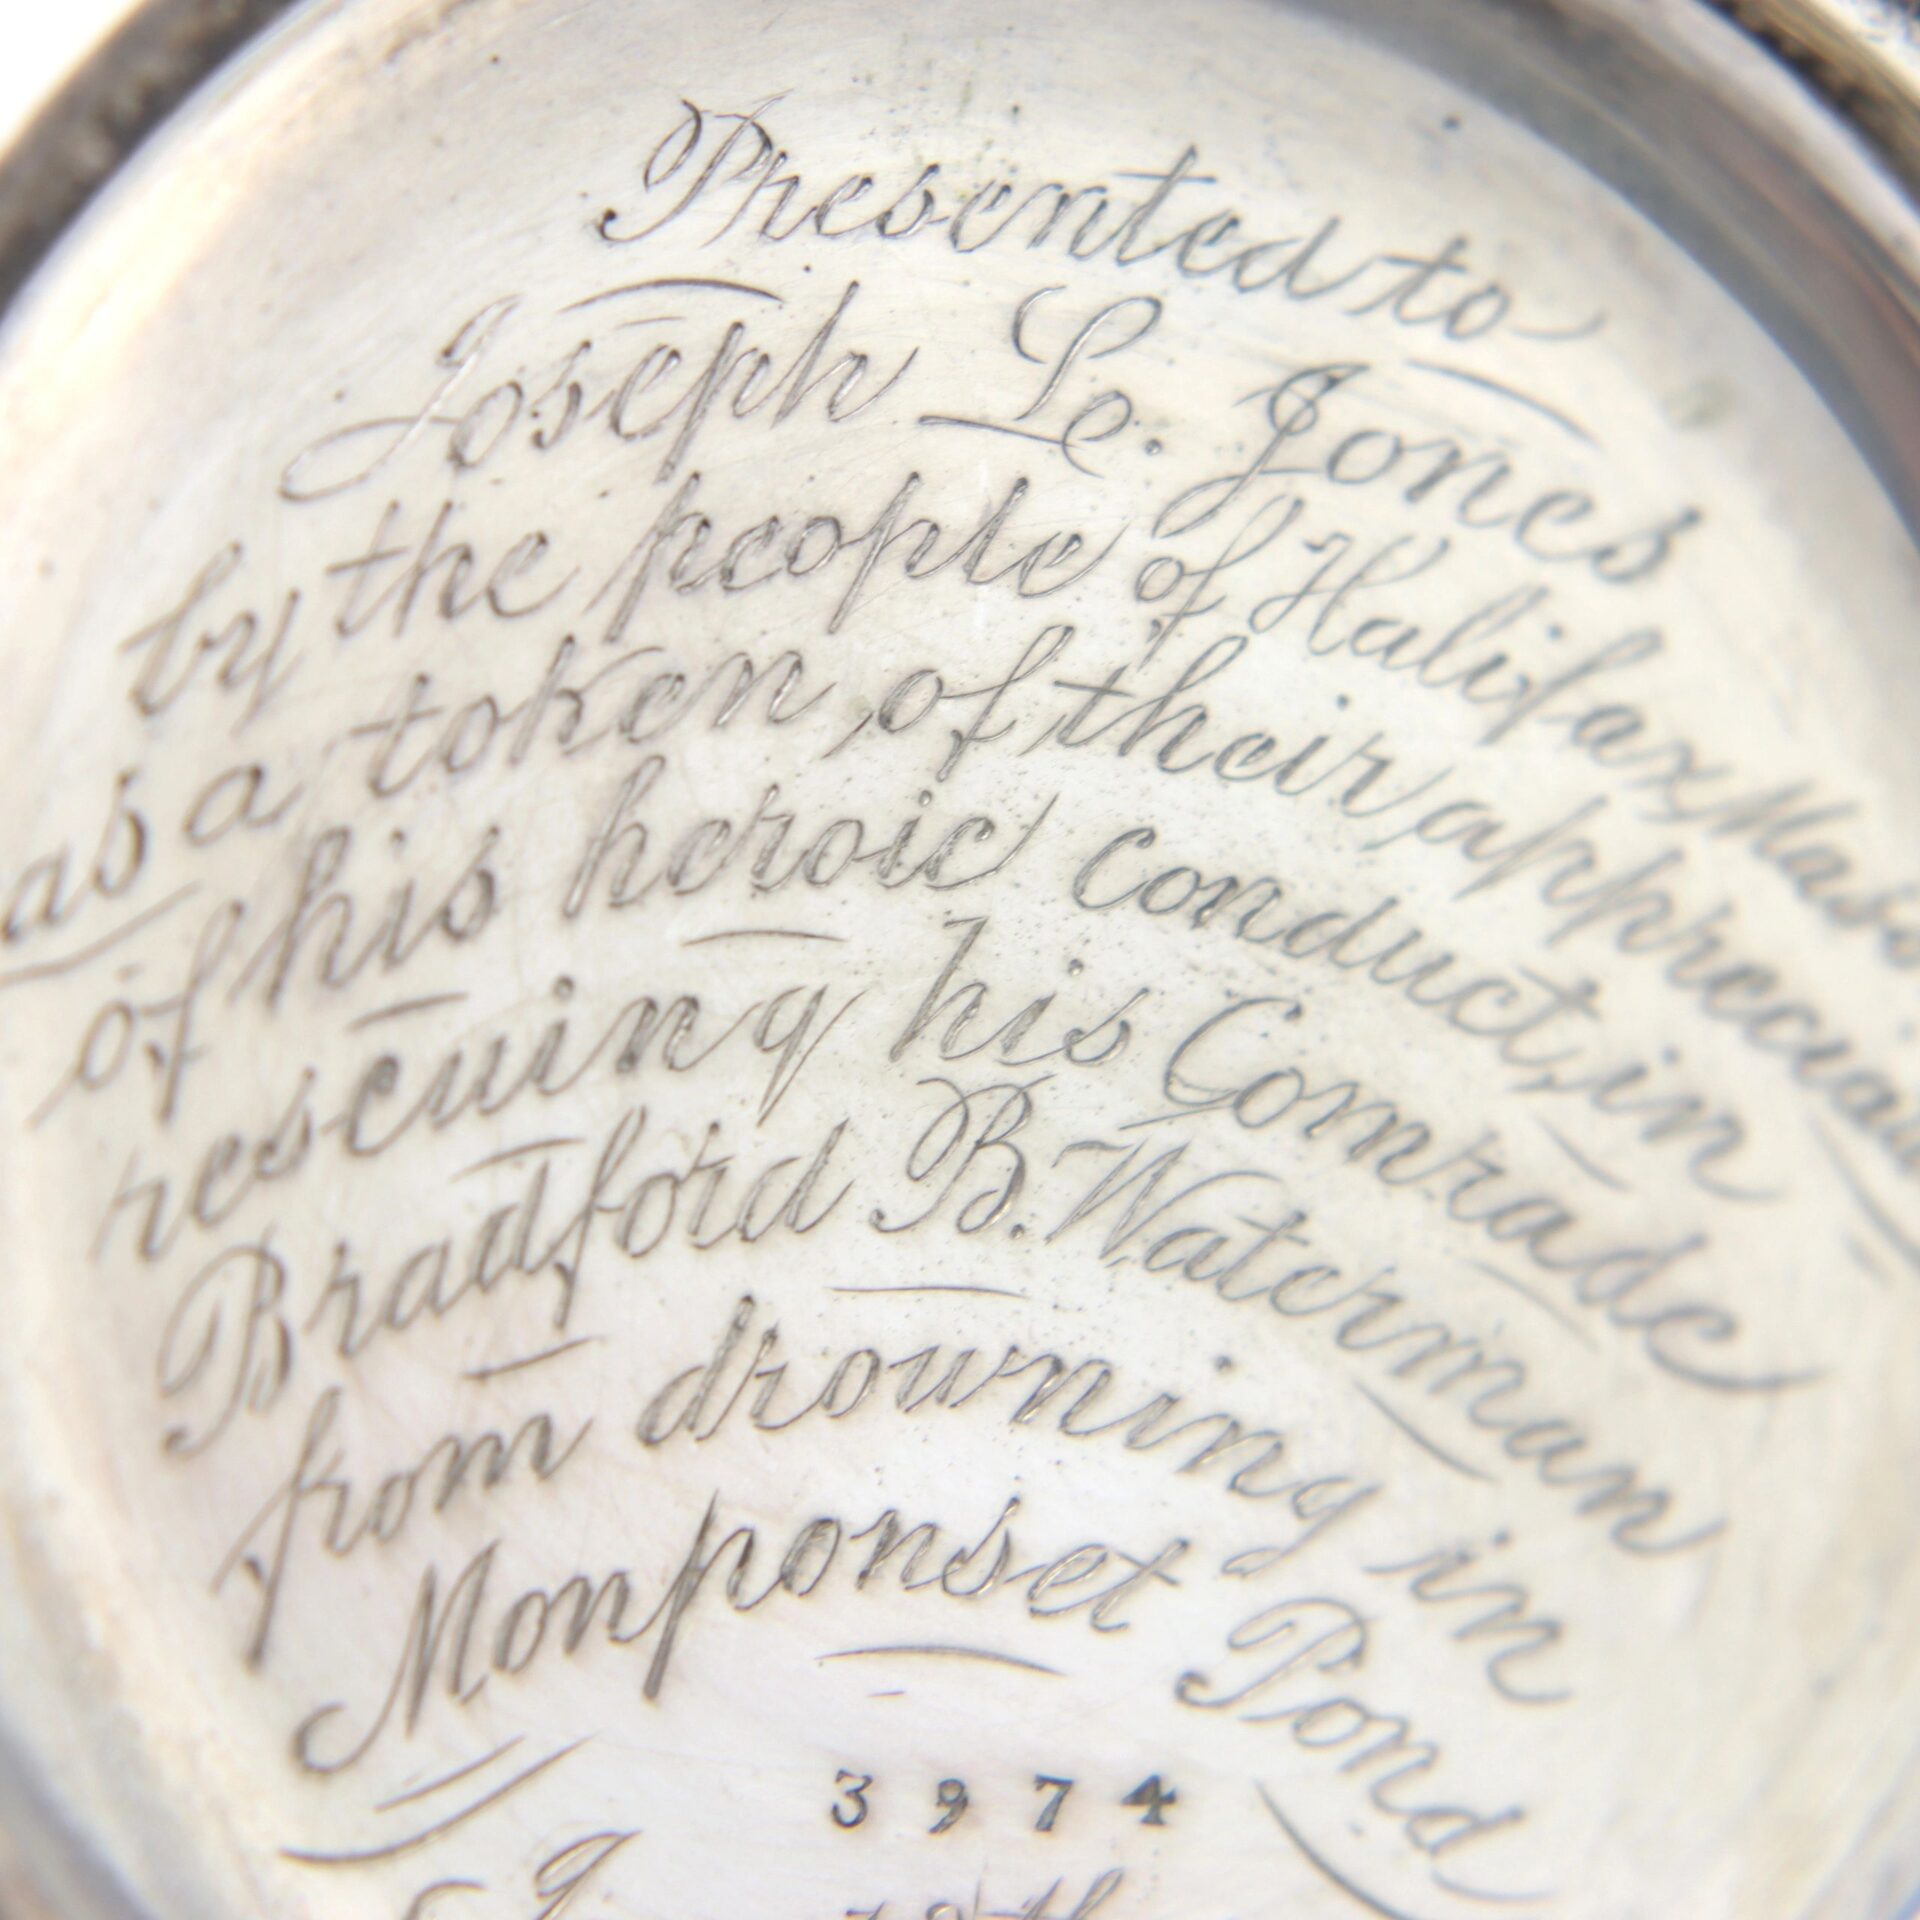 Presented to
Joseph Le. Jones
by the people of Halifax Mass
as a token of their appreciat
of his heroic conduct, in
rescuing his Comrade
Bradford B. Waterman
from drowning in
Monponset Pond
3974